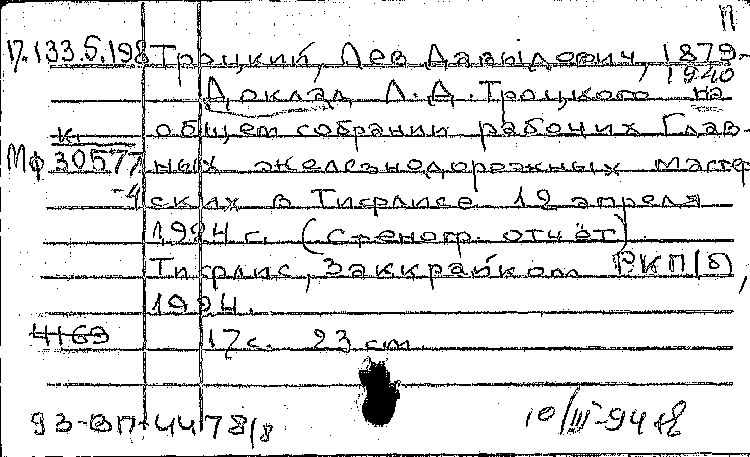 П
П.133.5.198 Троцкий, Лев Давыдович, 1879-
1940
Доклад Л.Д.Троцкого на
к.
общем собрании рабочих Глав-
Мф 30577 ных железнодорожных мастер
-4 ских в Тифлисе 12 апреля
1924 г. (Стеногр. отчёт).
Тифлис, Заккрайком РКП(б),
1924.
4169 17 с. 23 см.
93-ВП-4478/8 10/III-94